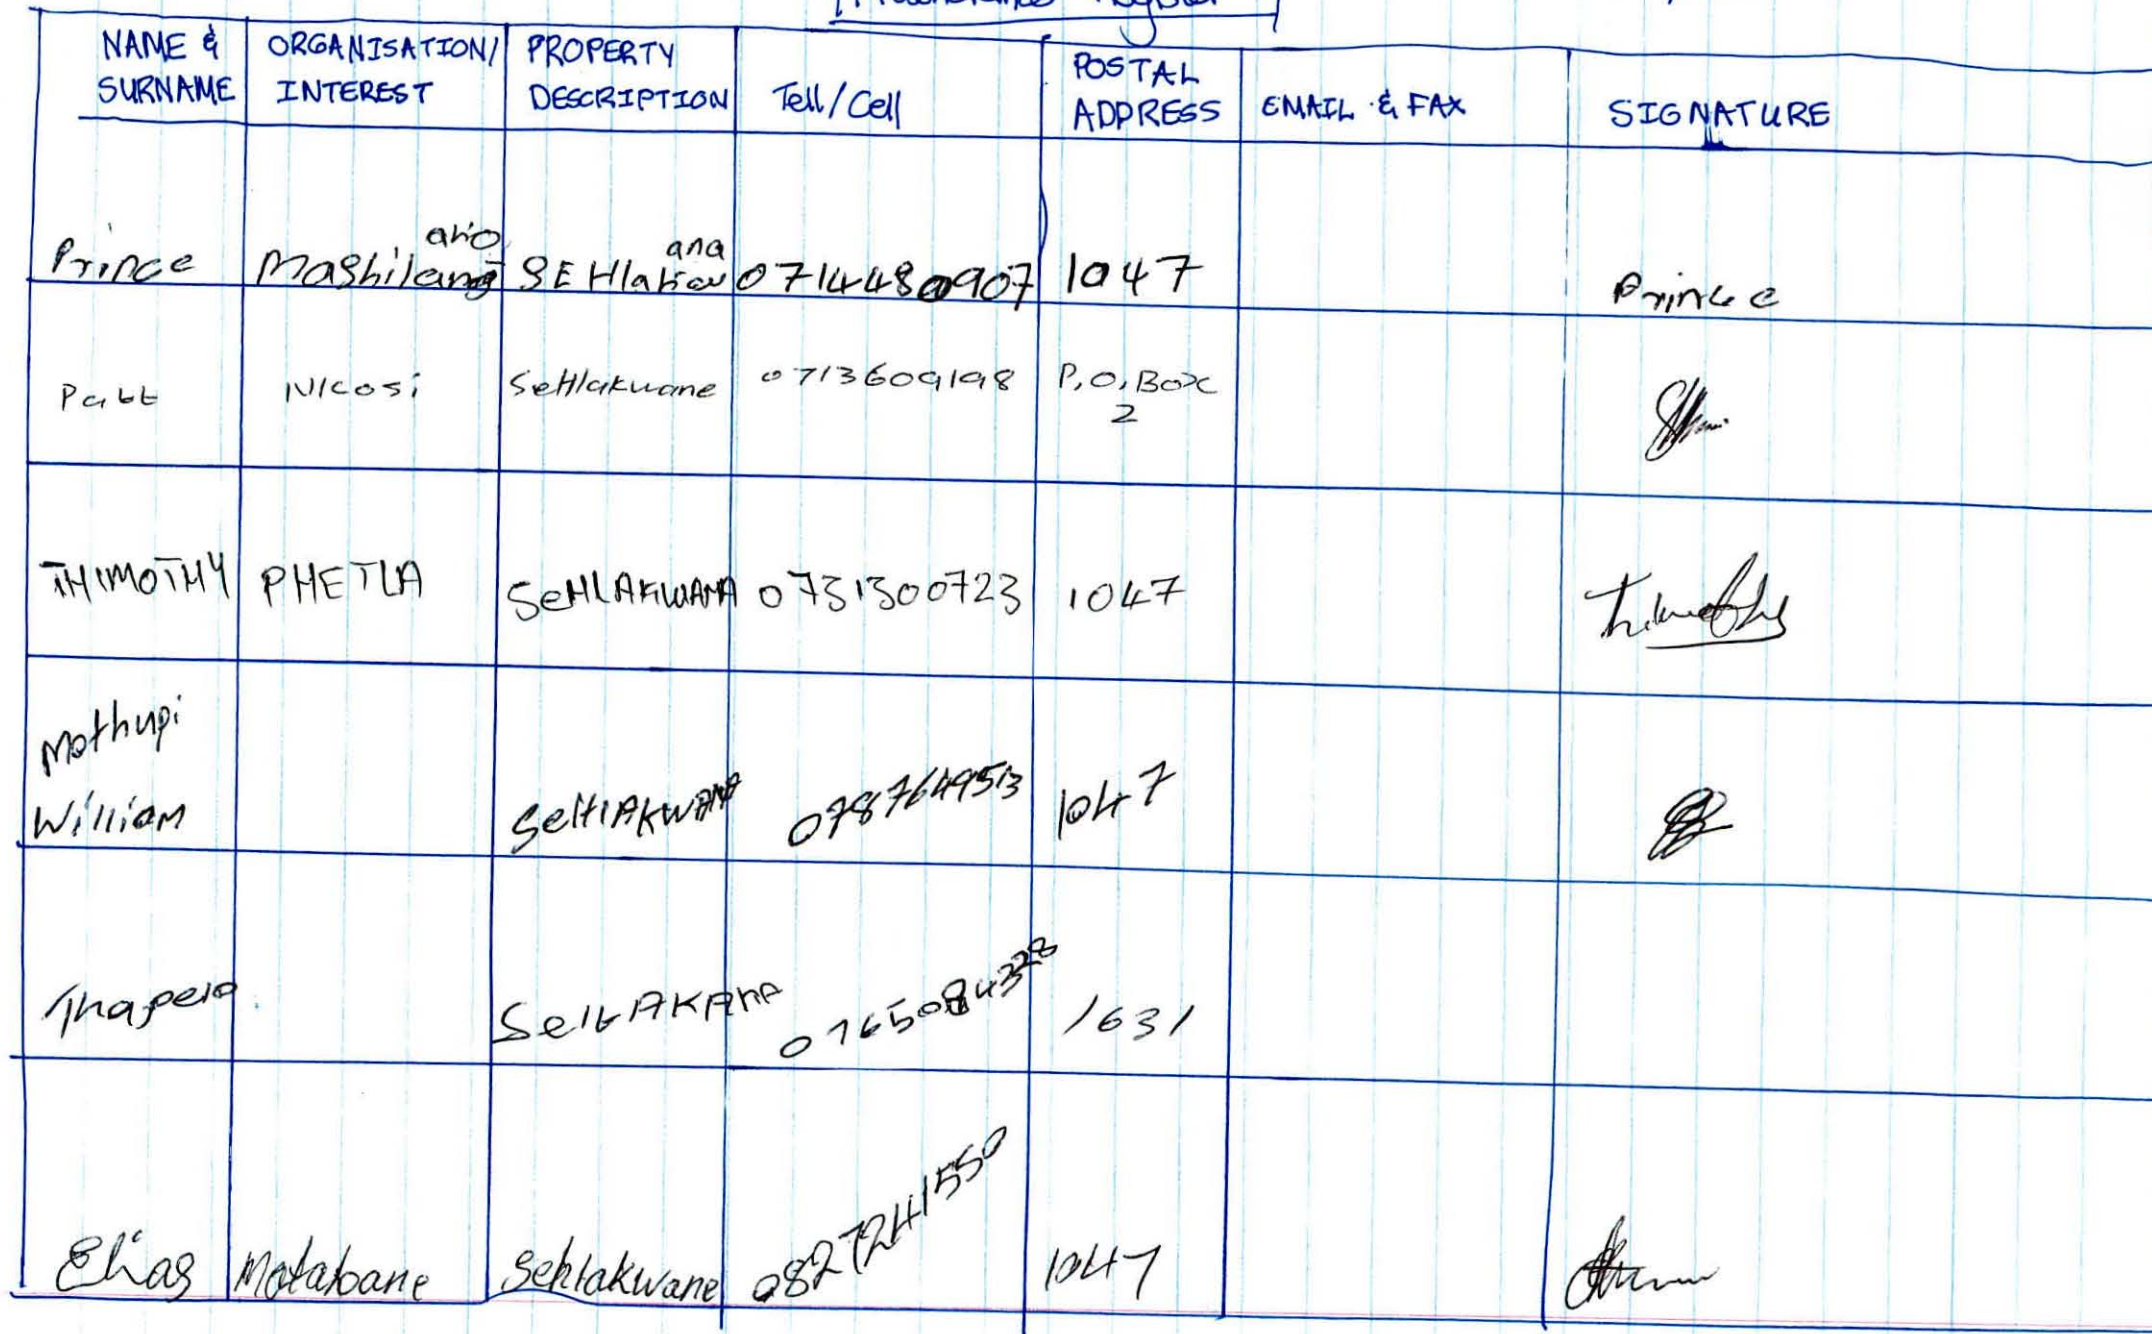 Attendance Register
NAME & SURNAME ORGANISATION/ INTEREST PROPERTY DESCRIPTION Tell/Cell POSTAL ADDRESS EMAIL & FAX SIGNATURE
ano ana
Prince Mashilang 0714480907 1047 Prince
Patt Nkosi Sehlakwane 0713609198 P.O.Box 2
THIMOTHY PHETLA SeHLAKWANA 0731300723 1047
Mothupi
William SeHlAKWANA 0787649513 1047
Thapelo 1631
Elias Matabane Sehlakwane 0827241550 1047